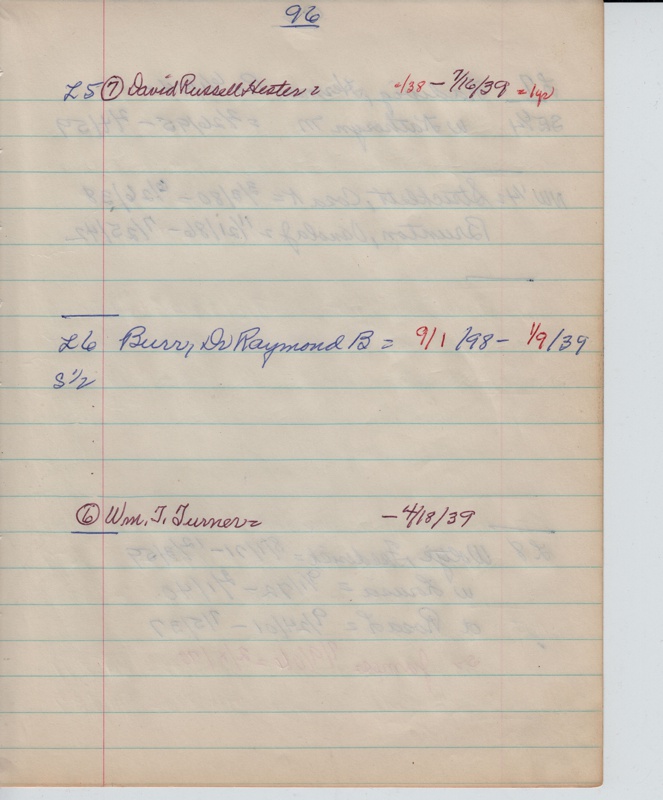 96
L5 ⑦ David Russell Hester = -/38 - 7/16/39 = 1yr
L6 Burr, Dr Raymond B = 9/1/98 - 1/9/39
S 1/2
⑥ Wm. T. Turner = - 4/18/39